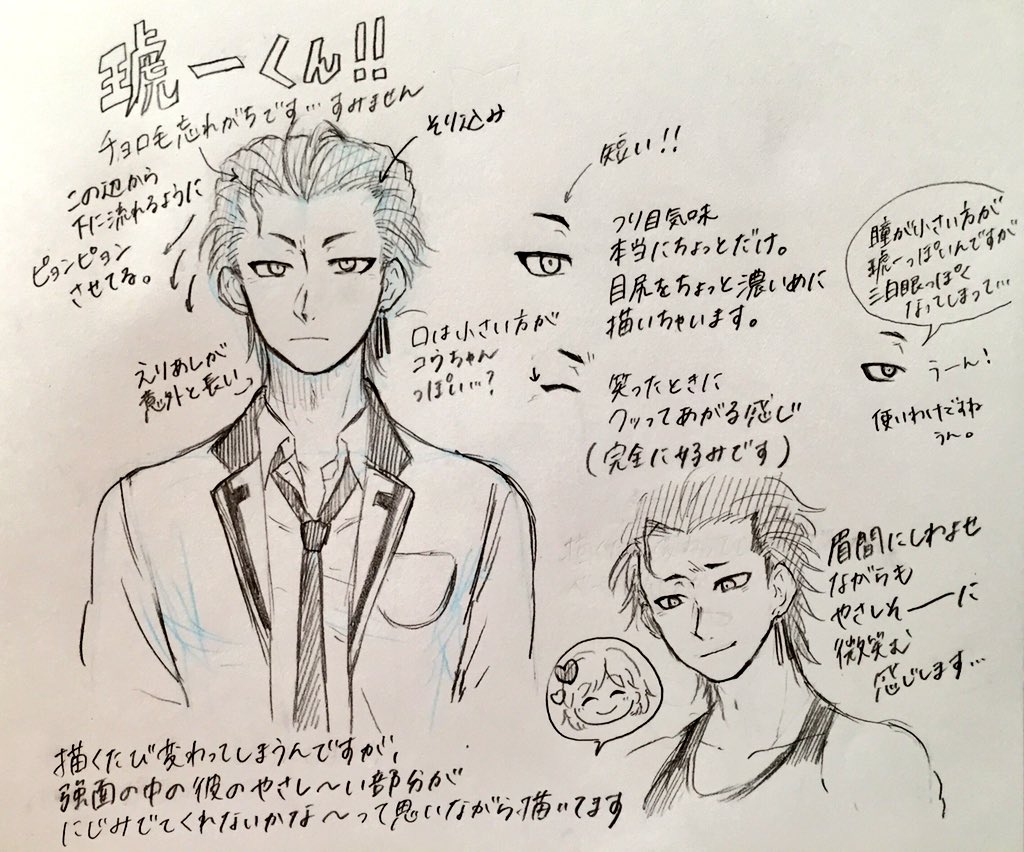 琥一くん!!
チョロ毛忘れがちです…すみません
そり込み
この辺から
下に流れるように
ピョンピョン
させてる。
えりあしが
意外と長い
口は小さい方が
コウちゃん
っぽい…?
短い!!
つり目気味
本当にちょっとだけ。
目尻をちょっと濃いめに
描いちゃいます。
瞳が小さい方が
琥一っぽいんですが
三白眼っぽく
なってしまって…
うーん!
使いわけですね
うん。
笑ったときに
クッってあがる感じ
(完全に好みです)
眉間にしわよせ
ながらも
やさしそーーに
微笑む
感じします…
描くたび変わってしまうんですが、
強面の中の彼のやさし〜い部分が
にじみでてくれないかな〜って思いながら描いてます